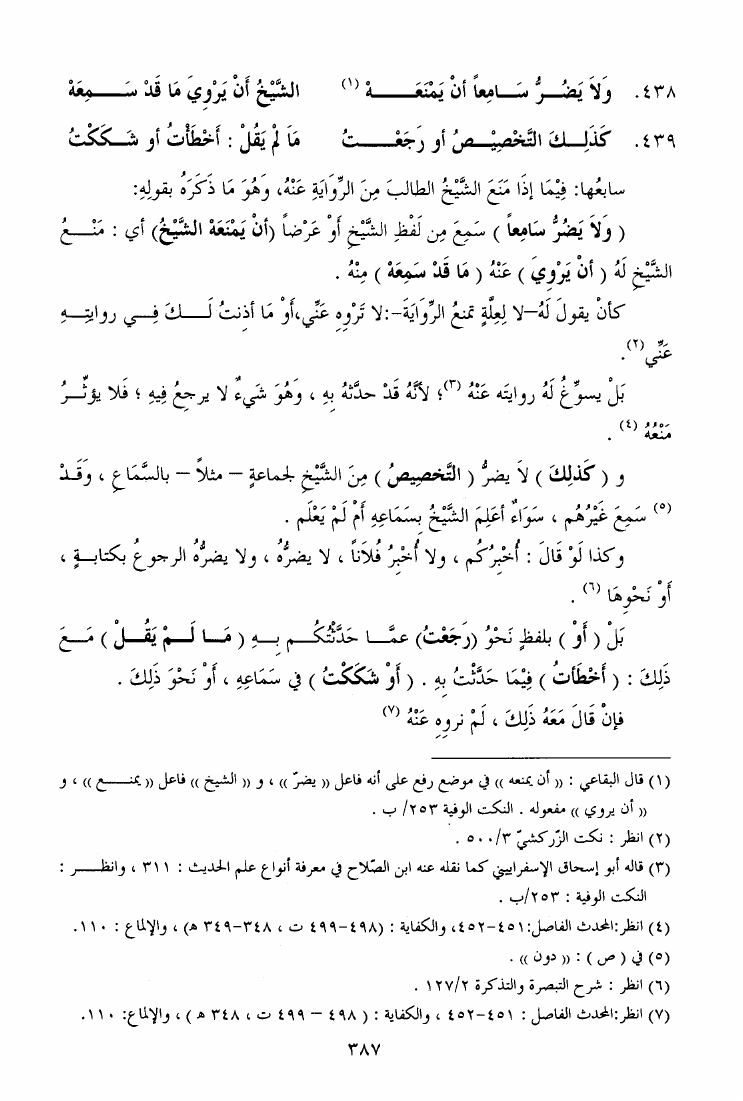 ٤٣٨. وَلاَ يَضُـــرُّ سَـــامِعاً أنْ يَمْنَعَــــــــهْ (١) الشَّيْخُ أنْ يَرْوِيَ مَا قَدْ سَـــــمِعَهْ
٤٣٩. كَذَلِــكَ التَّخْصِيْـــصُ أو رَجَعْـــــتُ مَا لَمْ يَقُلْ : أخْطَأْتُ أو شَـــكَكْتُ
سابعُها: فِيْمَا إذَا مَنَعَ الشَّيْخُ الطالبَ مِنَ الرِّوَايَةِ عَنْهُ، وَهُوَ مَا ذَكَرَهُ بقولِهِ:
( وَلاَ يَضُرُّ سَامِعاً ) سَمِعَ مِن لَفْظِ الشَّيْخِ أوْ عَرْضاً (أنْ يَمْنَعَهْ الشَّيْخُ) أي : مَنْـــعُ
الشَّيْخِ لَهُ ( أنْ يَرْوِيَ ) عَنْهُ ( مَا قَدْ سَمِعَهْ ) مِنْهُ .
كأنْ يقولَ لَهُ–لا لِعِلَّةٍ تمنعُ الرِّوَايَةَ–:لا تَرْوِهِ عَنِّي،أَوْ مَا أذنتُ لَـــكَ فِـــي روايتِـــهِ
عَنِّي (٢).
بَلْ يسوِّغُ لَهُ روايته عَنْهُ (٣)؛ لأنَّهُ قَدْ حدَّثهُ بِهِ ، وَهُوَ شَيءٌ لا يرجعُ فِيهِ ؛ فلا يؤثِّــرُ
مَنْعُهُ (٤) .
و ( كَذلِكَ ) لاَ يضرُّ ( التَّخصِيصُ ) مِنَ الشَّيْخِ لجماعةٍ – مثلاً – بالسَّمَاعِ ، وَقَــدْ
(٥) سَمِعَ غَيْرُهُم ، سَوَاءٌ أعَلِمَ الشَّيْخُ بِسَمَاعِهِ أمْ لَمْ يَعْلَم .
وكذا لَوْ قَالَ : أُخبِرُكُم ، ولا أُخْبِرُ فُلاَناً ، لا يضرُّهُ ، ولا يضرُّهُ الرجوعُ بكتابــةٍ ،
أَوْ نَحْوِهَا (٦) .
بَلْ ( أوْ ) بلفظٍ نَحْوُ (رَجَعْتُ) عمَّـــا حَدَّثْتُكُـــم بِـــهِ ( مَـــا لَـــمْ يَقُـــلْ ) مَـــعَ
ذَلِكَ : ( أخْطَأتُ ) فِيْمَا حَدَّثْتُ بِهِ . ( أوْ شَكَكْتُ ) في سَمَاعِهِ ، أوْ نَحْوَ ذَلِكَ .
فإنْ قَالَ مَعَهُ ذَلِكَ ، لَمْ نروِهِ عَنْهُ (٧)
(١) قال البقاعي : (( أن يمنعه )) في موضع رفع على أنه فاعل (( يضرّ )) ، و (( الشيخ )) فاعل (( يمنـــع )) ، و
(( أن يروي )) مفعوله . النكت الوفية ٢٥٣/ ب .
(٢) انظر : نكت الزّركشيّ ٥٠٠/٣ .
(٣) قاله أبو إسحاق الإسفراييني كما نقله عنه ابن الصّلاح في معرفة أنواع علم الحديث : ٣١١ ، وانظـــر :
النكت الوفية : ٢٥٣/ب .
(٤) انظر:المحدث الفاصل:٤٥١–٤٥٢، والكفاية : (٤٩٨–٤٩٩ ت ، ٣٤٨–٣٤٩ ه) ، والإلماع : ١١٠.
(٥) في ( ص ) : (( دون )) .
(٦) انظر : شرح التبصرة والتذكرة ١٢٧/٢ .
(٧) انظر:المحدث الفاصل : ٤٥١–٤٥٢ ، والكفاية : ( ٤٩٨ – ٤٩٩ ت ، ٣٤٨ ه ) ، والإلماع: ١١٠.
٣٨٧